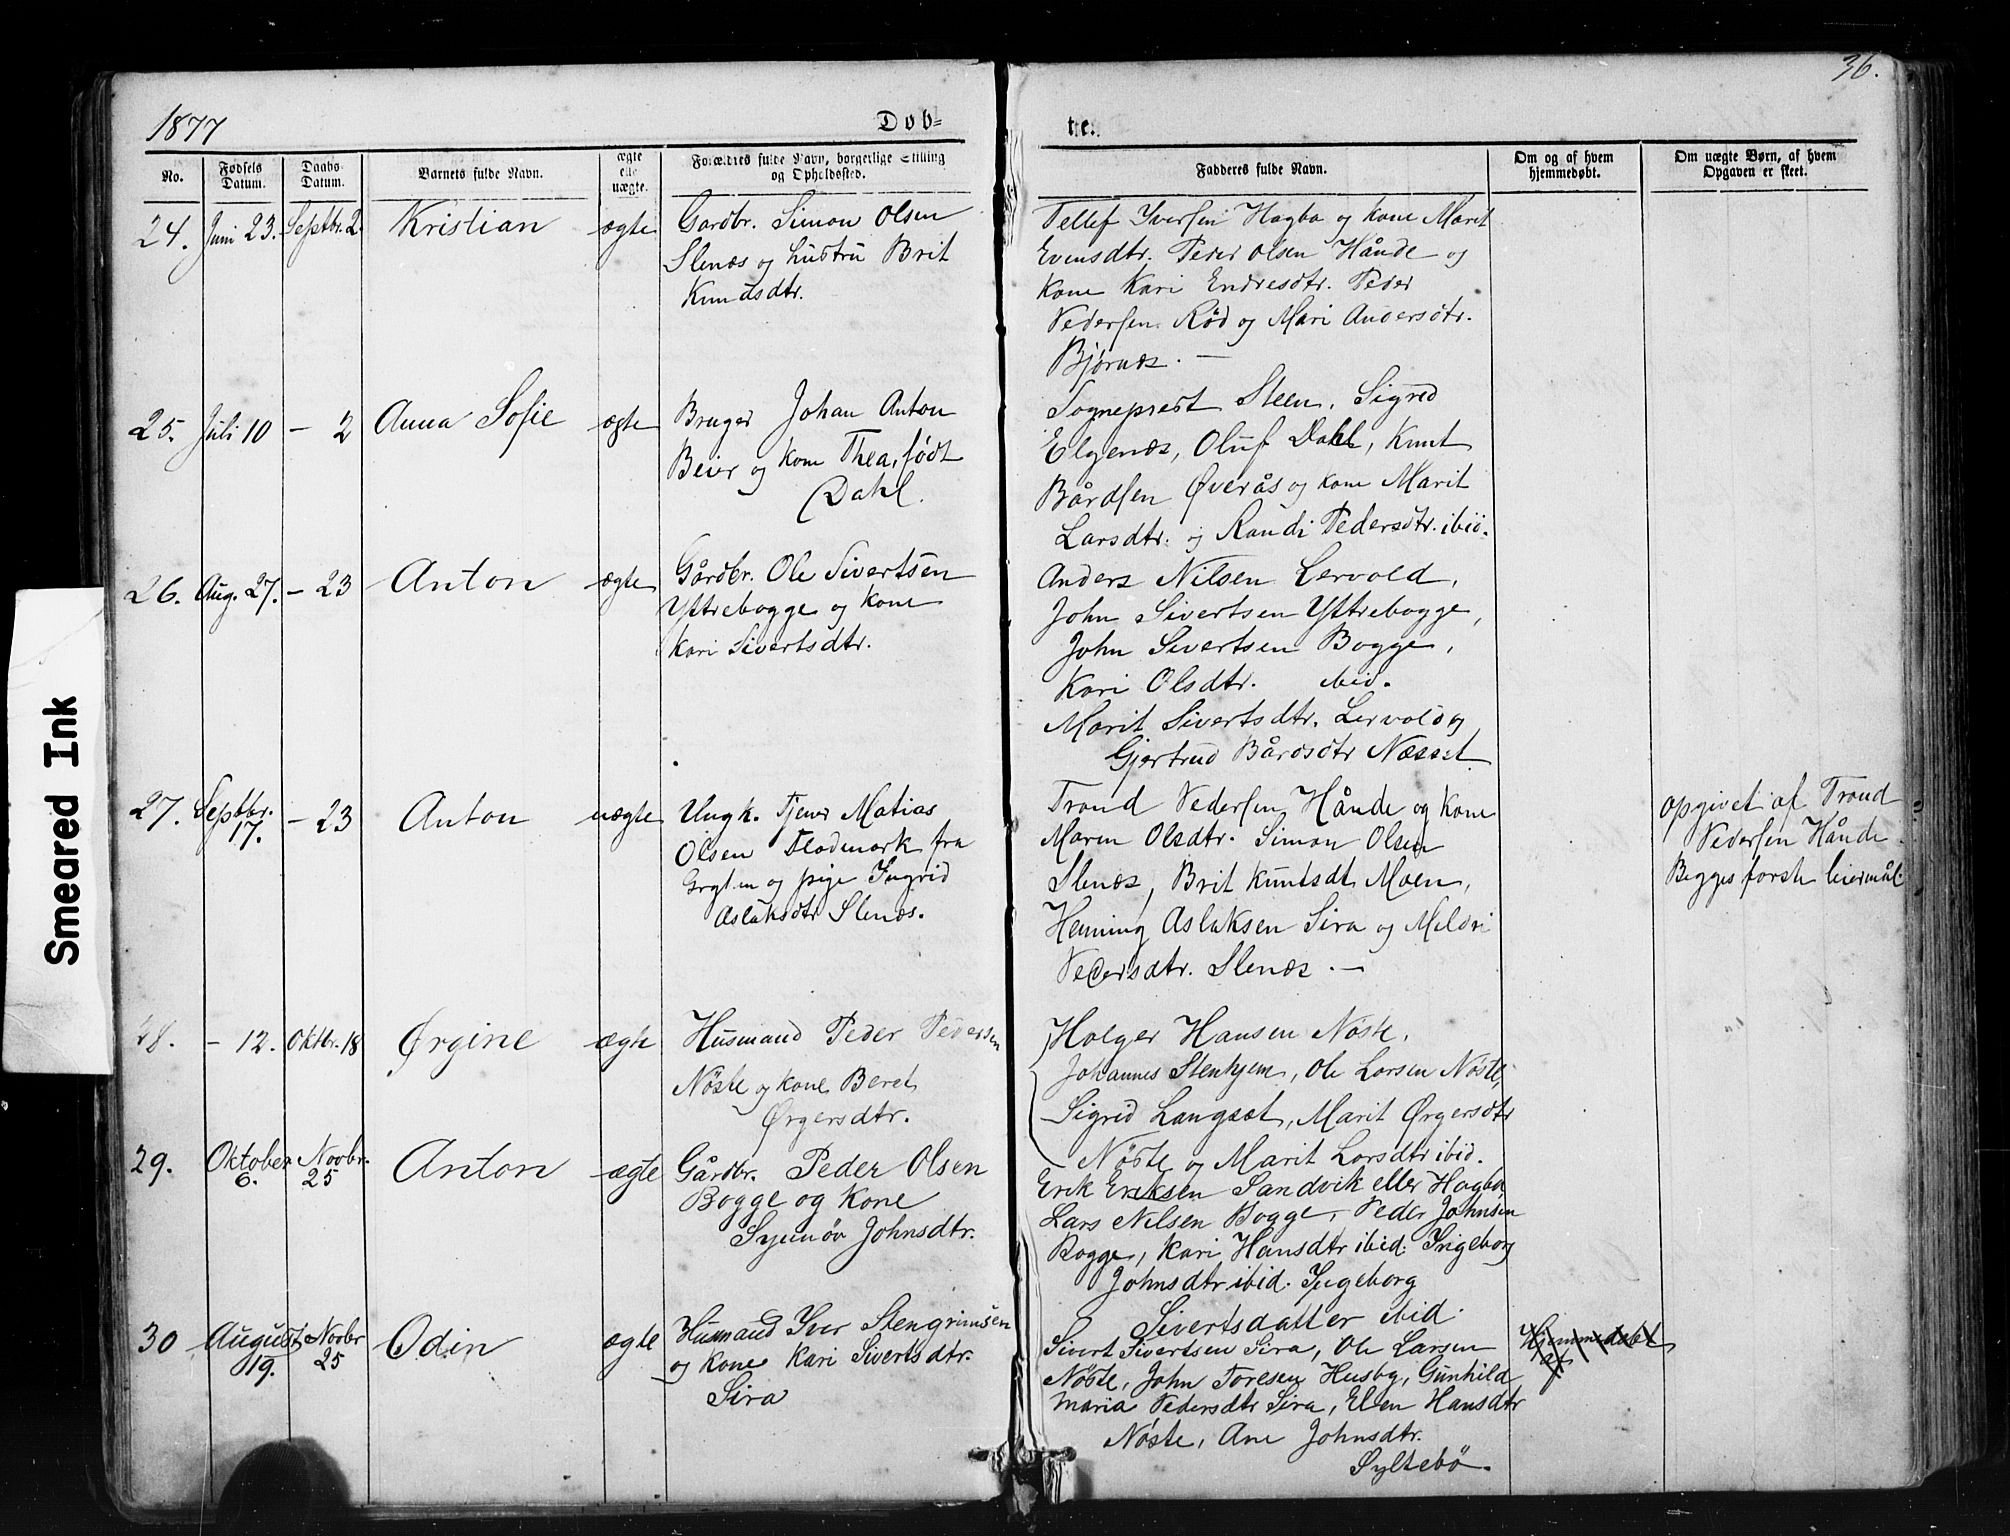 36.
1877
Døb=
te.
No.
Fødsels Datum.
Daabs Datum.
Barnets fulde Navn.
ægte elle uægte.
Forældres fulde Navn, borgerlige Stilling og Opholdssted.
Fadderes fulde Navn.
Om og af hvem hjemmedøbt.
Om uægte Børn, af hvem Opgaven er skeet.
24. Juni 23. Septbr. 2. Kristian ægte
Gardbr. Simon Olsen
Slenæs og hustru Brit
Knudsdtr.
Tellef Iversen Hagbø og kone Marit
Evensdtr. Peder Olsen Hånde og
kone Kari Endresdtr. Peder
Pedersen Rød og Mari Andersdtr.
Bjørnæs. —
25. Juli 10 — 2 Anna Sofie ægte
Bruger Johan Anton
Beier og kone Thea, født
Dahl.
Sogneprest Steen, Sigrid
Elgenæs, Oluf Dahl, Knut
Bårdsen Øverås og kone Marit
Larsdtr. og Randi Pedersdtr. ibid.
26. Aug. 27. — 23 Anton ægte
Gårdbr. Ole Sivertsen
Yttrebogge og kone
Kari Sivertsdtr.
Anders Nilsen Lervold,
John Sivertsen Yttrebogge,
John Sivertsen Bogge,
Kari Olsdtr. ibid.
Marit Sivertsdtr. Lervold og
Gjertrud Bårdsdtr Næsset
27. Septbr. 17. — 23 Anton uægte
Ungk. Tjener Matias
Olsen Flodmark fra
Grytten og pige Ingrid
Aslaksdtr Slenæs.
Trond Pedersen Hånde og Kone
Maren Olsdtr. Simon Olsen
Slenæs, Brit Knutsdt Moen,
Henning Aslaksen Sira og Mildri
Pedersdtr. Slenæs. —
opgivet af Trond
Pedersen Hånde.
Begges første leiermål.
28. — 12. Oktbr. 18 Ørgine ægte
Husmand Peder Pedersen
Nöste og kone Beret
Ørgersdtr.
Holger Hansen Nöste,
Johannes Stenhjem, Ole Larsen Nöste,
Sigrid Langsæt, Marit Ørgersdtr
Nöste og Marit Larsdtr ibid.
29. Oktober 6. Novbr. 25 Anton ægte
Gårdbr. Peder Olsen
Bogge og Kone
Synnöv Johnsdtr.
Erik Eriksen Sandvik eller Hagbø
Lars Nilsen Bogge, Peder Johnsen
Bogge, Kari Hansdtr ibid. Ingeborg
Johnsdtr ibid. Ingeborg
Sivertsdatter ibid.
30 August 19. Novbr 25 Odin ægte
Husmand Iver Stengrimsen
og kone Kari Sivertsdtr.
Sira
Sivert Sivertsen Sira, Ole Larsen
Nöste, John Toresen Husby, Gunhild
Maria Pedersdtr Sira, Elen Hansdtr
Nöste, Ane Johnsdtr.
Syltebö.
Hjemmedøbt
af
Smeared Ink